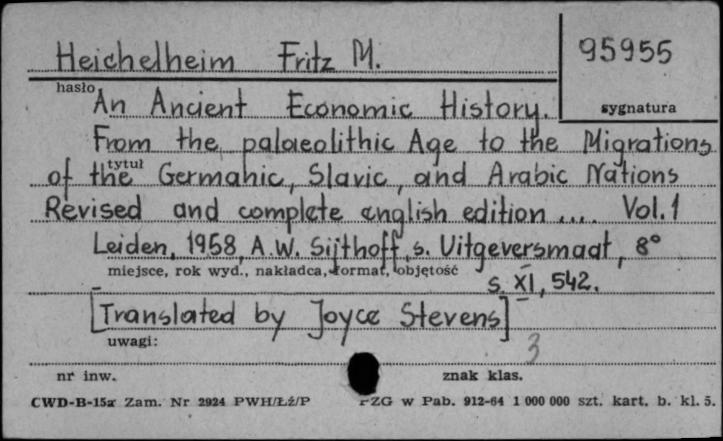 Heichelheim Fritz M. 95955
hasło sygnatura
An Ancient Economic History.
From the palaeolithic Age to the Migrations
tytuł
of the Germanic, Slavic, and Arabic Nations
Revised and complete english edition .... Vol.1
Leiden, 1958, A.W. Sijthoff, s. Uitgeversmaat, 8°
miejsce, rok wyd., nakładca, format, objętość
s. XI, 542.
[Translated by Joyce Stevens]
uwagi:
3
nr inw. znak klas.
CWD-B-15a Zam. Nr 2924 PWH/Łź/P PZG w Pab. 912-64 1 000 000 szt. kart. b. kl. 5.